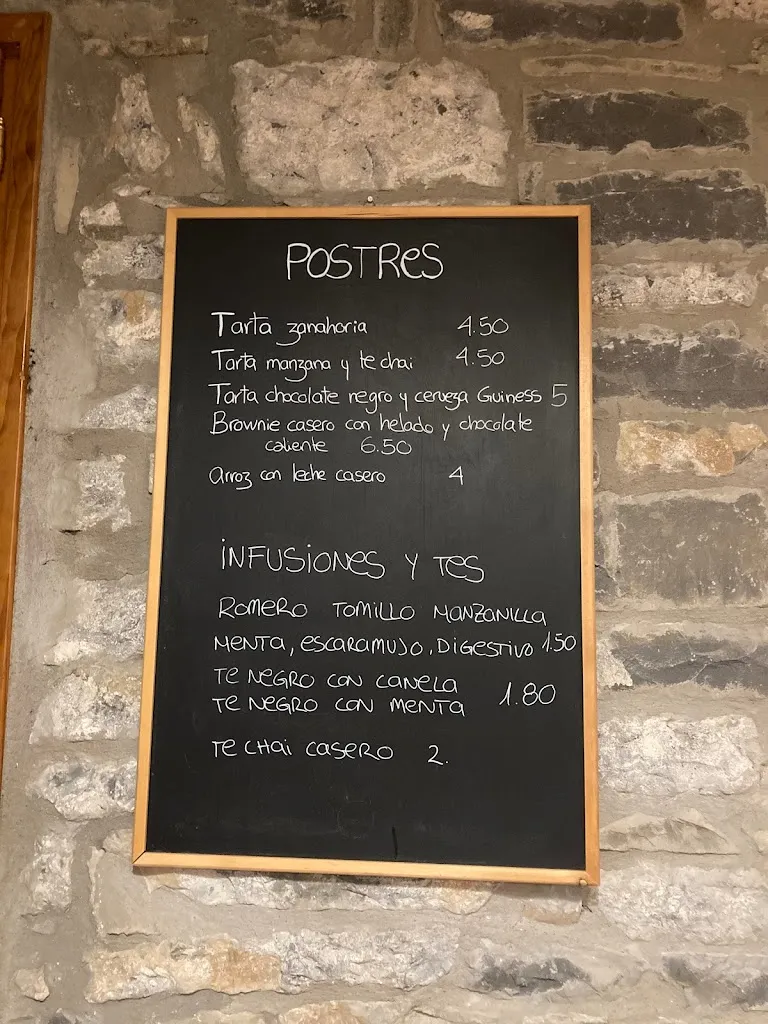 POSTRES
Tarta zanahoria 4.50
Tarta manzana y te chai 4.50
Tarta chocolate negro y cerveza Guiness 5
Brownie casero con helado y chocolate
caliente 6.50
Arroz con leche casero 4
INFUSIONES Y TES
ROMERO TOMILLO MANZANILLA
MENTA, ESCARAMUJO, DIGESTIVO 1.50
TE NEGRO CON CANELA
TE NEGRO CON MENTA 1.80
TE CHAI CASERO 2.